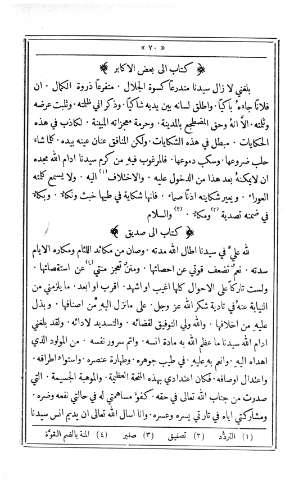 « ٧٠ »
﴿ كتاب الى بعض الاكابر ﴾
بلغني لا زال سيدنا متدرعًا كسوة الجلال . متفرعًا ذروة الكمال . ان
فلانًا جاءه باكيًا . واطلق لسانه بين يديه شاكيًا . وذكر اني ظلمته . وثلبت عرضه
وثلمته . ألا انه وحق المصطفي بالمدينة . وحرمة معجزاته المبينة . لكاذب في هذه
الحكايات . مبطل في هذه الشكايات . ولكن المنافق عنان عينه بيده . كلما شاء
حلب ضروعها . وسكب دموعها . فالمرغوب فيه من كرم سيدنا ادام الله مجده
ان لا يمكنه بعد هذا من الدخول عليه . والاختلاف (١) اليه . ولا يسمع كلمته
العوراء . ويعير شكايته اذنًا صماء . فانها شكاية في طيها خبث ونكاء . وبكاء
في ضمنه تصدية (٢) ومكاء . (٣) والسلام
﴿ كتاب الى صديق ﴾
لله عليّ في سيدنا اطال الله مدته . وصان من مكائد اللئام ومكاره الايام
سدته . نعم تضعف قوتي عن احصائها . ومنن تعجز منتي (٤) عن استقصائها .
ولست تاركًا على الاحوال كلها غيب او اشهد . اقرب او ابعد . ما يلزمني من
النيابة عنه في تادية شكر الله عز وجل . على مانزل اليه من اصنافها . وبذل
عليه من اخلافها . والله ولي التوفيق لقضائه . والتسديد لادائه . ولقد بلغني
الان خبر سيدنا ما عظم الله به مادة انسه . واتم سرور نفسه . من المولود الذي
اهداه اليه . وانعم به عليه . في طيب جوهره . وطهارة عنصره . واستواء اطرافه .
واعتدال اوصافه . فكان اعتدادي بهذه المنحة العظيمة . والموهبة الجسيمة . التي
صدرت من جناب الله تعالى في حقه . كفوء مساهمتي له في حالتي نفعه وضره .
ومشاركتي اياه في تارتي يسره وعسره . وانا اسأل الله تعالى ان يديم انس سيدنا
(١) التردُّد (٢) تصفيق (٣) صفير (٤) المنة بالضم القوّة